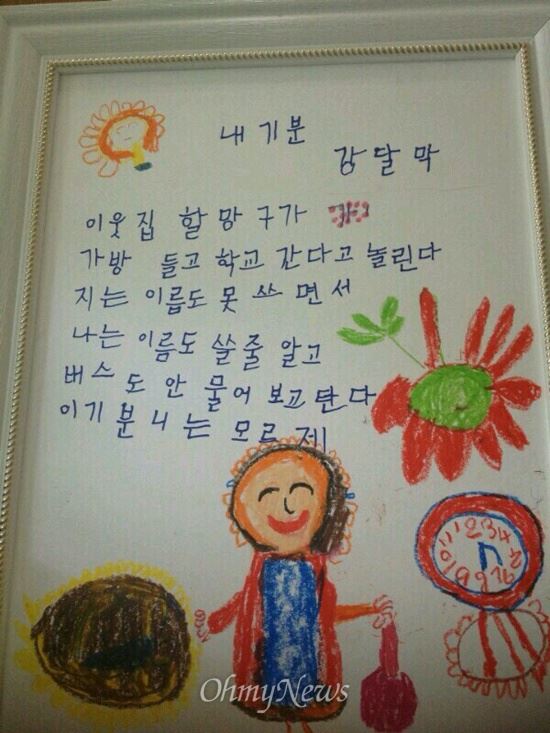 내 기분
강달막
이웃집 할망구가
가방 들고 학교 간다고 놀린다
지는 이름도 못 쓰면서
나는 이름도 쓸줄 알고
버스도 안 물어 보고 탄다
이기분 니는 모르제
OhmyNews